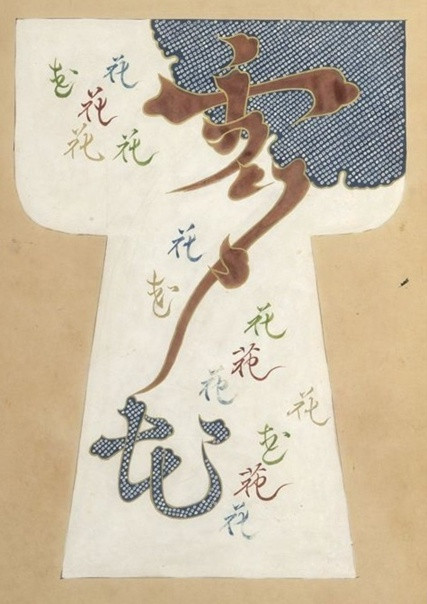 花
花
花
花
花
花
花
花
花
花
花
花
花
花
花